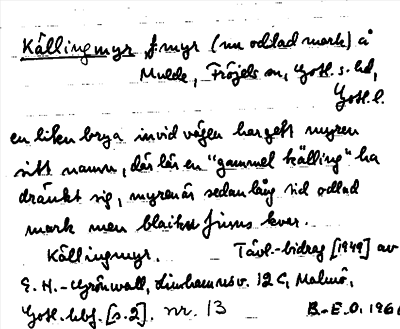 Källingmyr, f.myr (nu odlad mark) å
Mulde, Fröjels sn, Gotl. s. hd,
Gotl. l.
en liten brya invid vägen har gett myren
sitt namn, där lär en "gammel källing" ha
dränkt sig, myren är sedan lång tid odlad
mark men blaiku finns kvar.
Källingmyr. Tävl.-bidrag [1949] av
E. H. Grönwall, Limhamnsv. 12 C, Malmö,
Gotl. hbf. [s. 2]. nr. 13 B.-E.O. 196